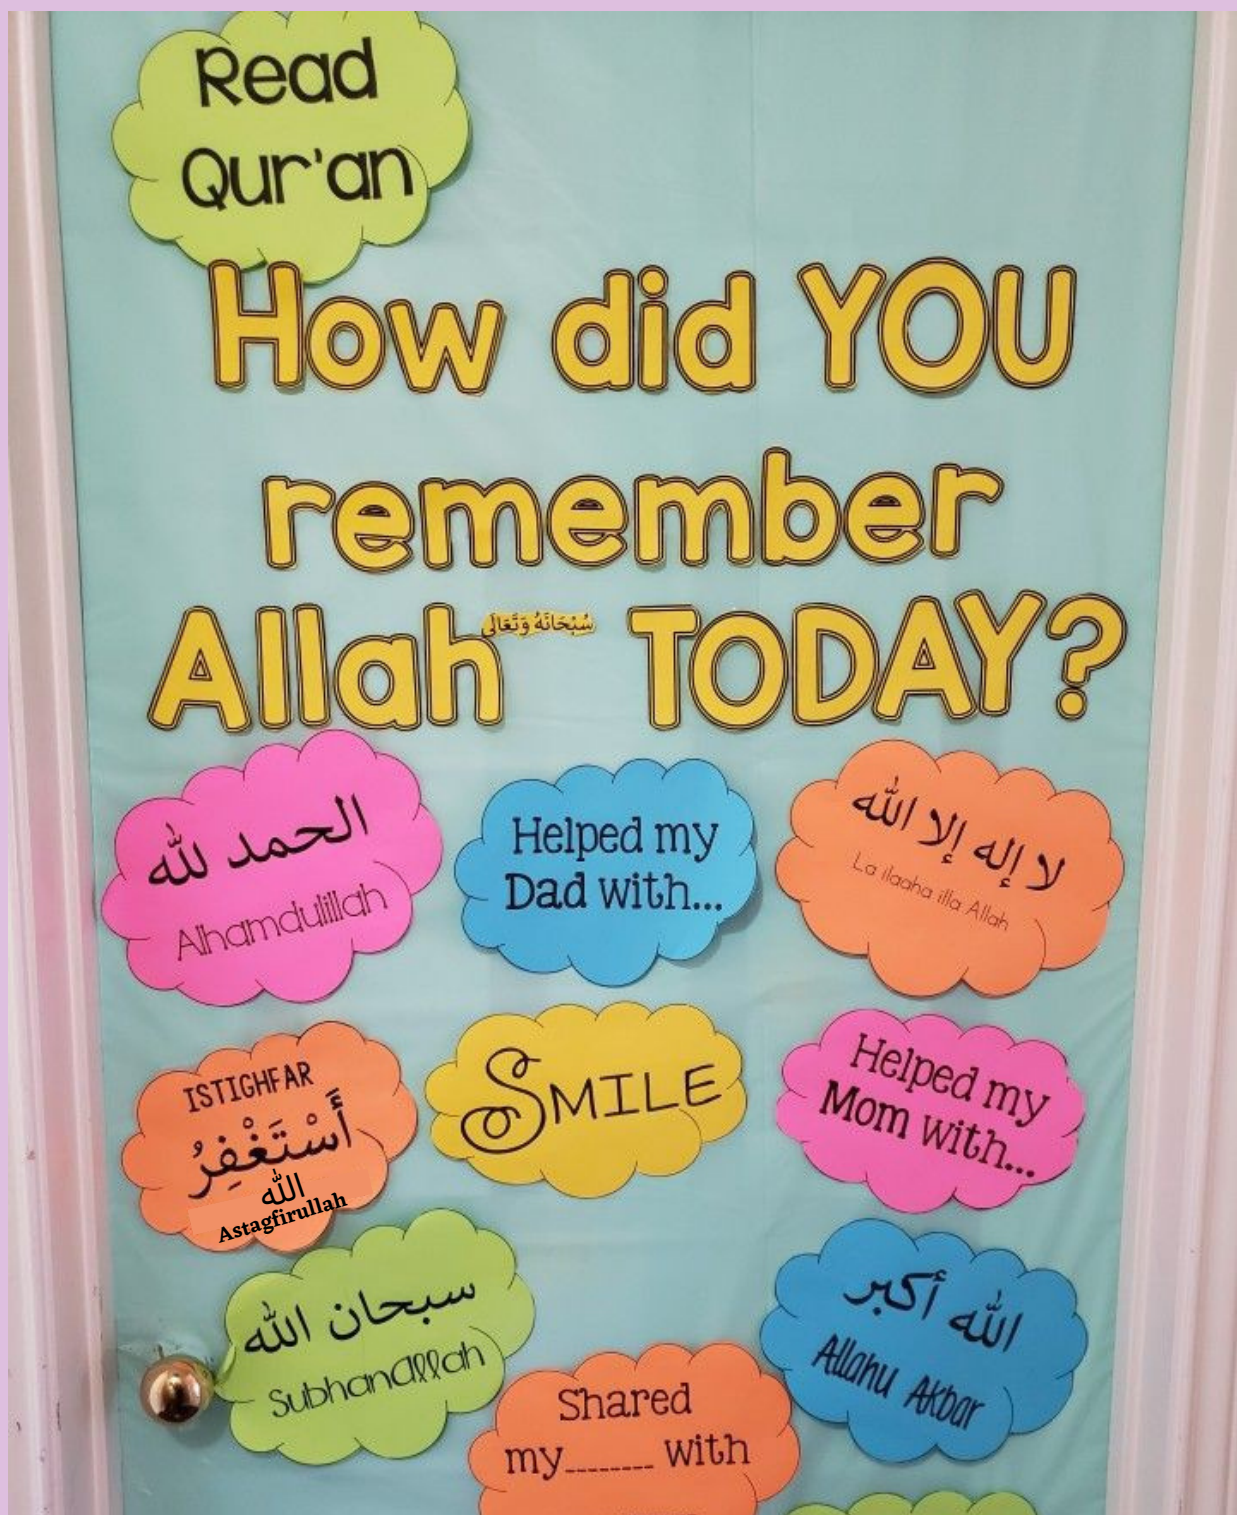 Read
Qur'an
How did YOU
remember
Allah سُبْحَانَهُ وَتَعَالَى TODAY?
الحمد لله
Alhamdulillah
Helped my
Dad with...
لا إله إلا الله
La ilaaha illa Allah
ISTIGHFAR
أَسْتَغْفِرُ
الله
Astagfirullah
SMILE
Helped my
Mom with...
سبحان الله
SubhanAllah
الله أكبر
Allahu Akbar
Shared
my________ with